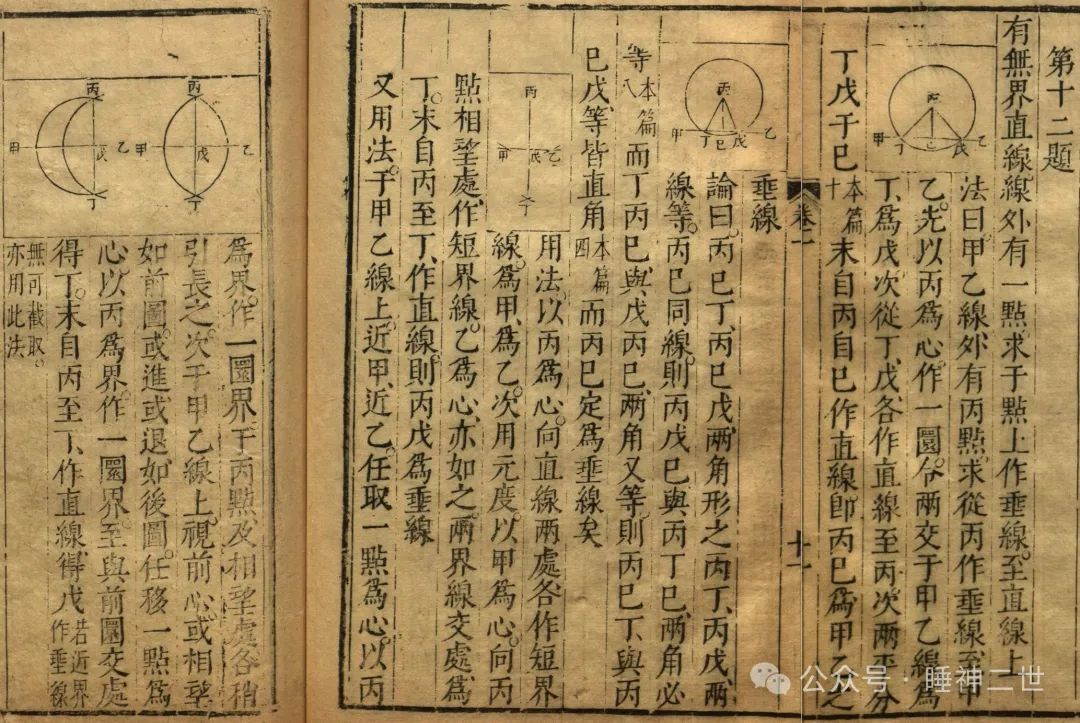 第十二題
有無界直線線外有一點。求于點上作垂線。至直線上
法曰甲乙線外。有丙點。求從丙作垂線至甲
乙。先以丙為心。作一圜。令兩交于甲乙線為
丁、為戊次從丁、戊、各作直線至丙。次兩平分
丁戊于巳本篇十末自丙自巳作直線。即丙巳為甲乙之
卷一
十一
垂線
論曰。丙巳丁、丙巳戊、兩角形之丙丁、丙戊、兩
線等。丙巳同線。則丙戊巳與丙丁巳、兩角必
等本篇八而丁丙巳、與戊丙巳、兩角又等。則丙巳丁、與丙
巳戊、等皆直角本篇四而丙巳定為垂線矣
用法以丙為心。向直線兩處各作短界
線。為甲、為乙。次用元度。以甲為心。向丙
點相望處、作短界線。乙為心、亦如之。兩界線交處、為
丁。末自丙至丁、作直線。則丙戊為垂線
又用法。于甲乙線上。近甲、近乙、任取一點為心。以丙
為界。作一圜界。于丙點、及相望處各稍
引長之。次于甲乙線上。視前心、或相望
如前圖。或進或退如後圖。任移一點為
心。以丙為界。作一圜界。至與前圜交處
得丁。末自丙至丁、作直線、得戊若近界作垂線
無可截取。亦用此法
丙
丁 巳 戊
甲 乙
公众号·睡神二世